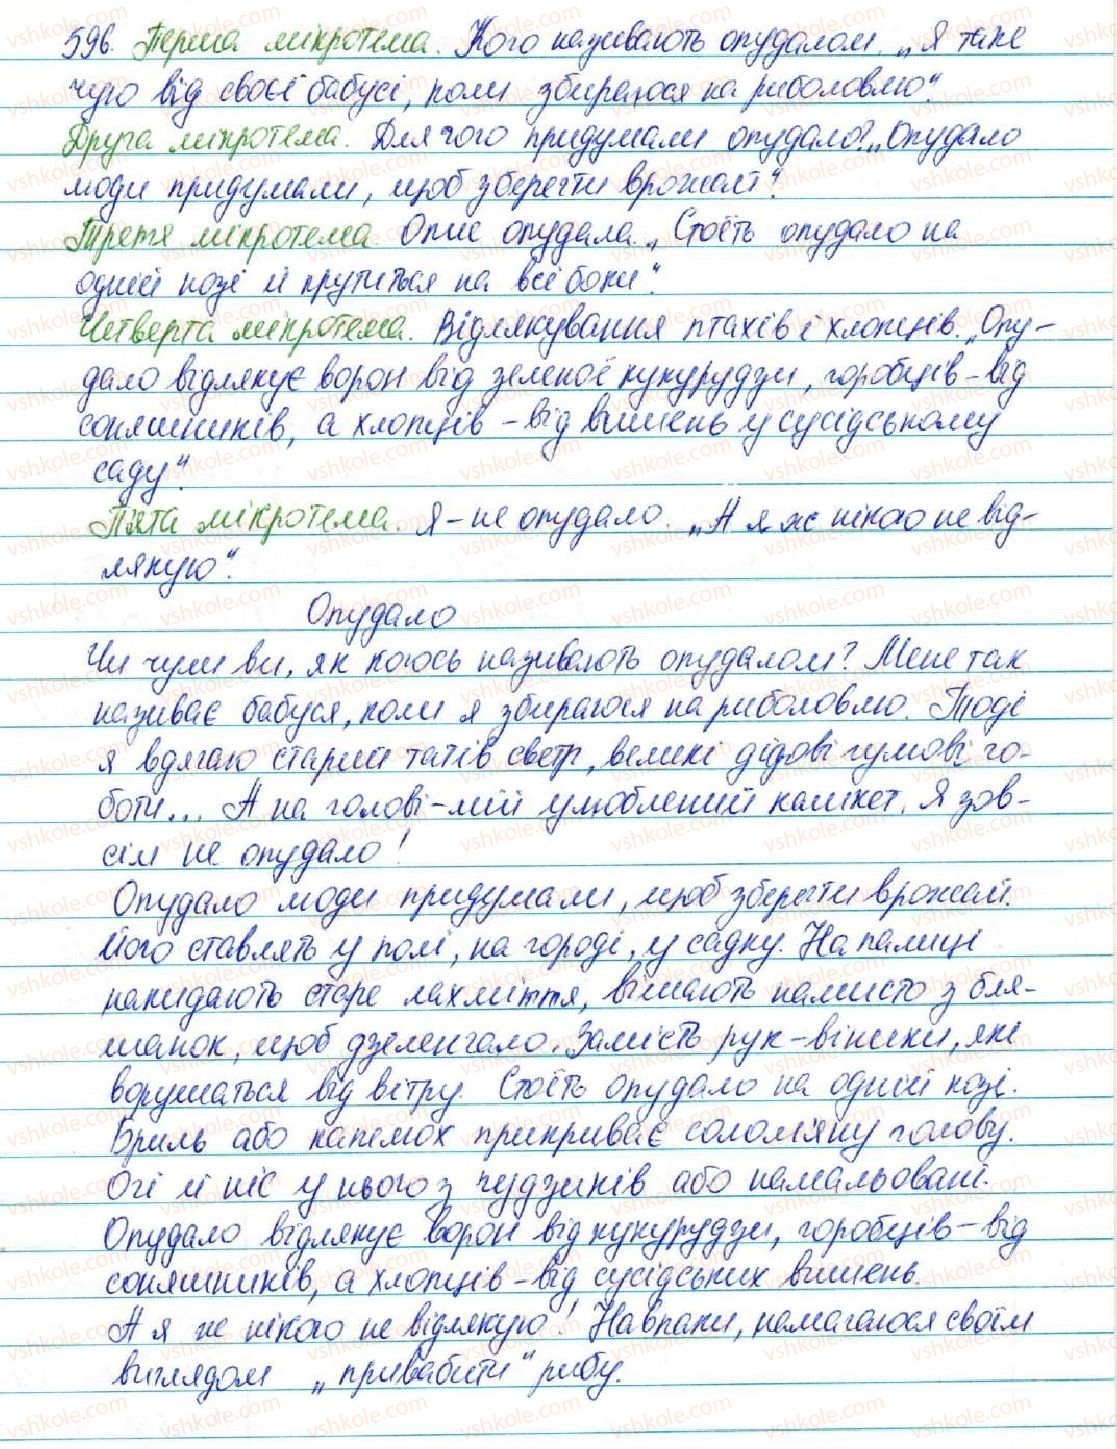 596. Перша мікротема. Кого називають опудалом. „Я таке
чую від своєї бабусі, коли збираюся на риболовлю".
Друга мікротема. Для чого придумали опудало? „Опудало
люди придумали, щоб зберегти врожай".
Третя мікротема Опис опудала. „Стоїть опудало на
одній нозі й крутиться на всі боки".
Четверта мікротема. Відлякування птахів і хлопців. „Опу-
дало відлякує ворон від зеленої кукурудзи, горобців – від
соняшників, а хлопців – від вишень у сусідському
саду".
П'ята мікротема. Я – не опудало. „А я ж нікого не від-
лякую".
Опудало
Чи чули ви, як когось називають опудалом? Мене так
називає бабуся, коли я збираюся на риболовлю. Тоді
я вдягаю старий татів светр, великі дідові гумові чо-
боти... А на голові – мій улюблений кашкет. Я зов-
сім не опудало!
Опудало люди придумали, щоб зберегти врожай.
Його ставлять у полі, на городі, у садку. На палиці
накидають старе лахміття, вішають намисто з бля-
шанок, щоб дзеленчало. Замість рук – віники, які
ворушаться від вітру. Стоїть опудало на одній нозі.
Бриль або капелюх прикриває солом'яну голову.
Очі й ніс у нього з ґудзиків або намальовані.
Опудало відлякує ворон від кукурудзи, горобців – від
соняшників, а хлопців – від сусідських вишень.
А я же нікого не відлякую! Навпаки, намагаюся своїм
виглядом „привабити" рибу.